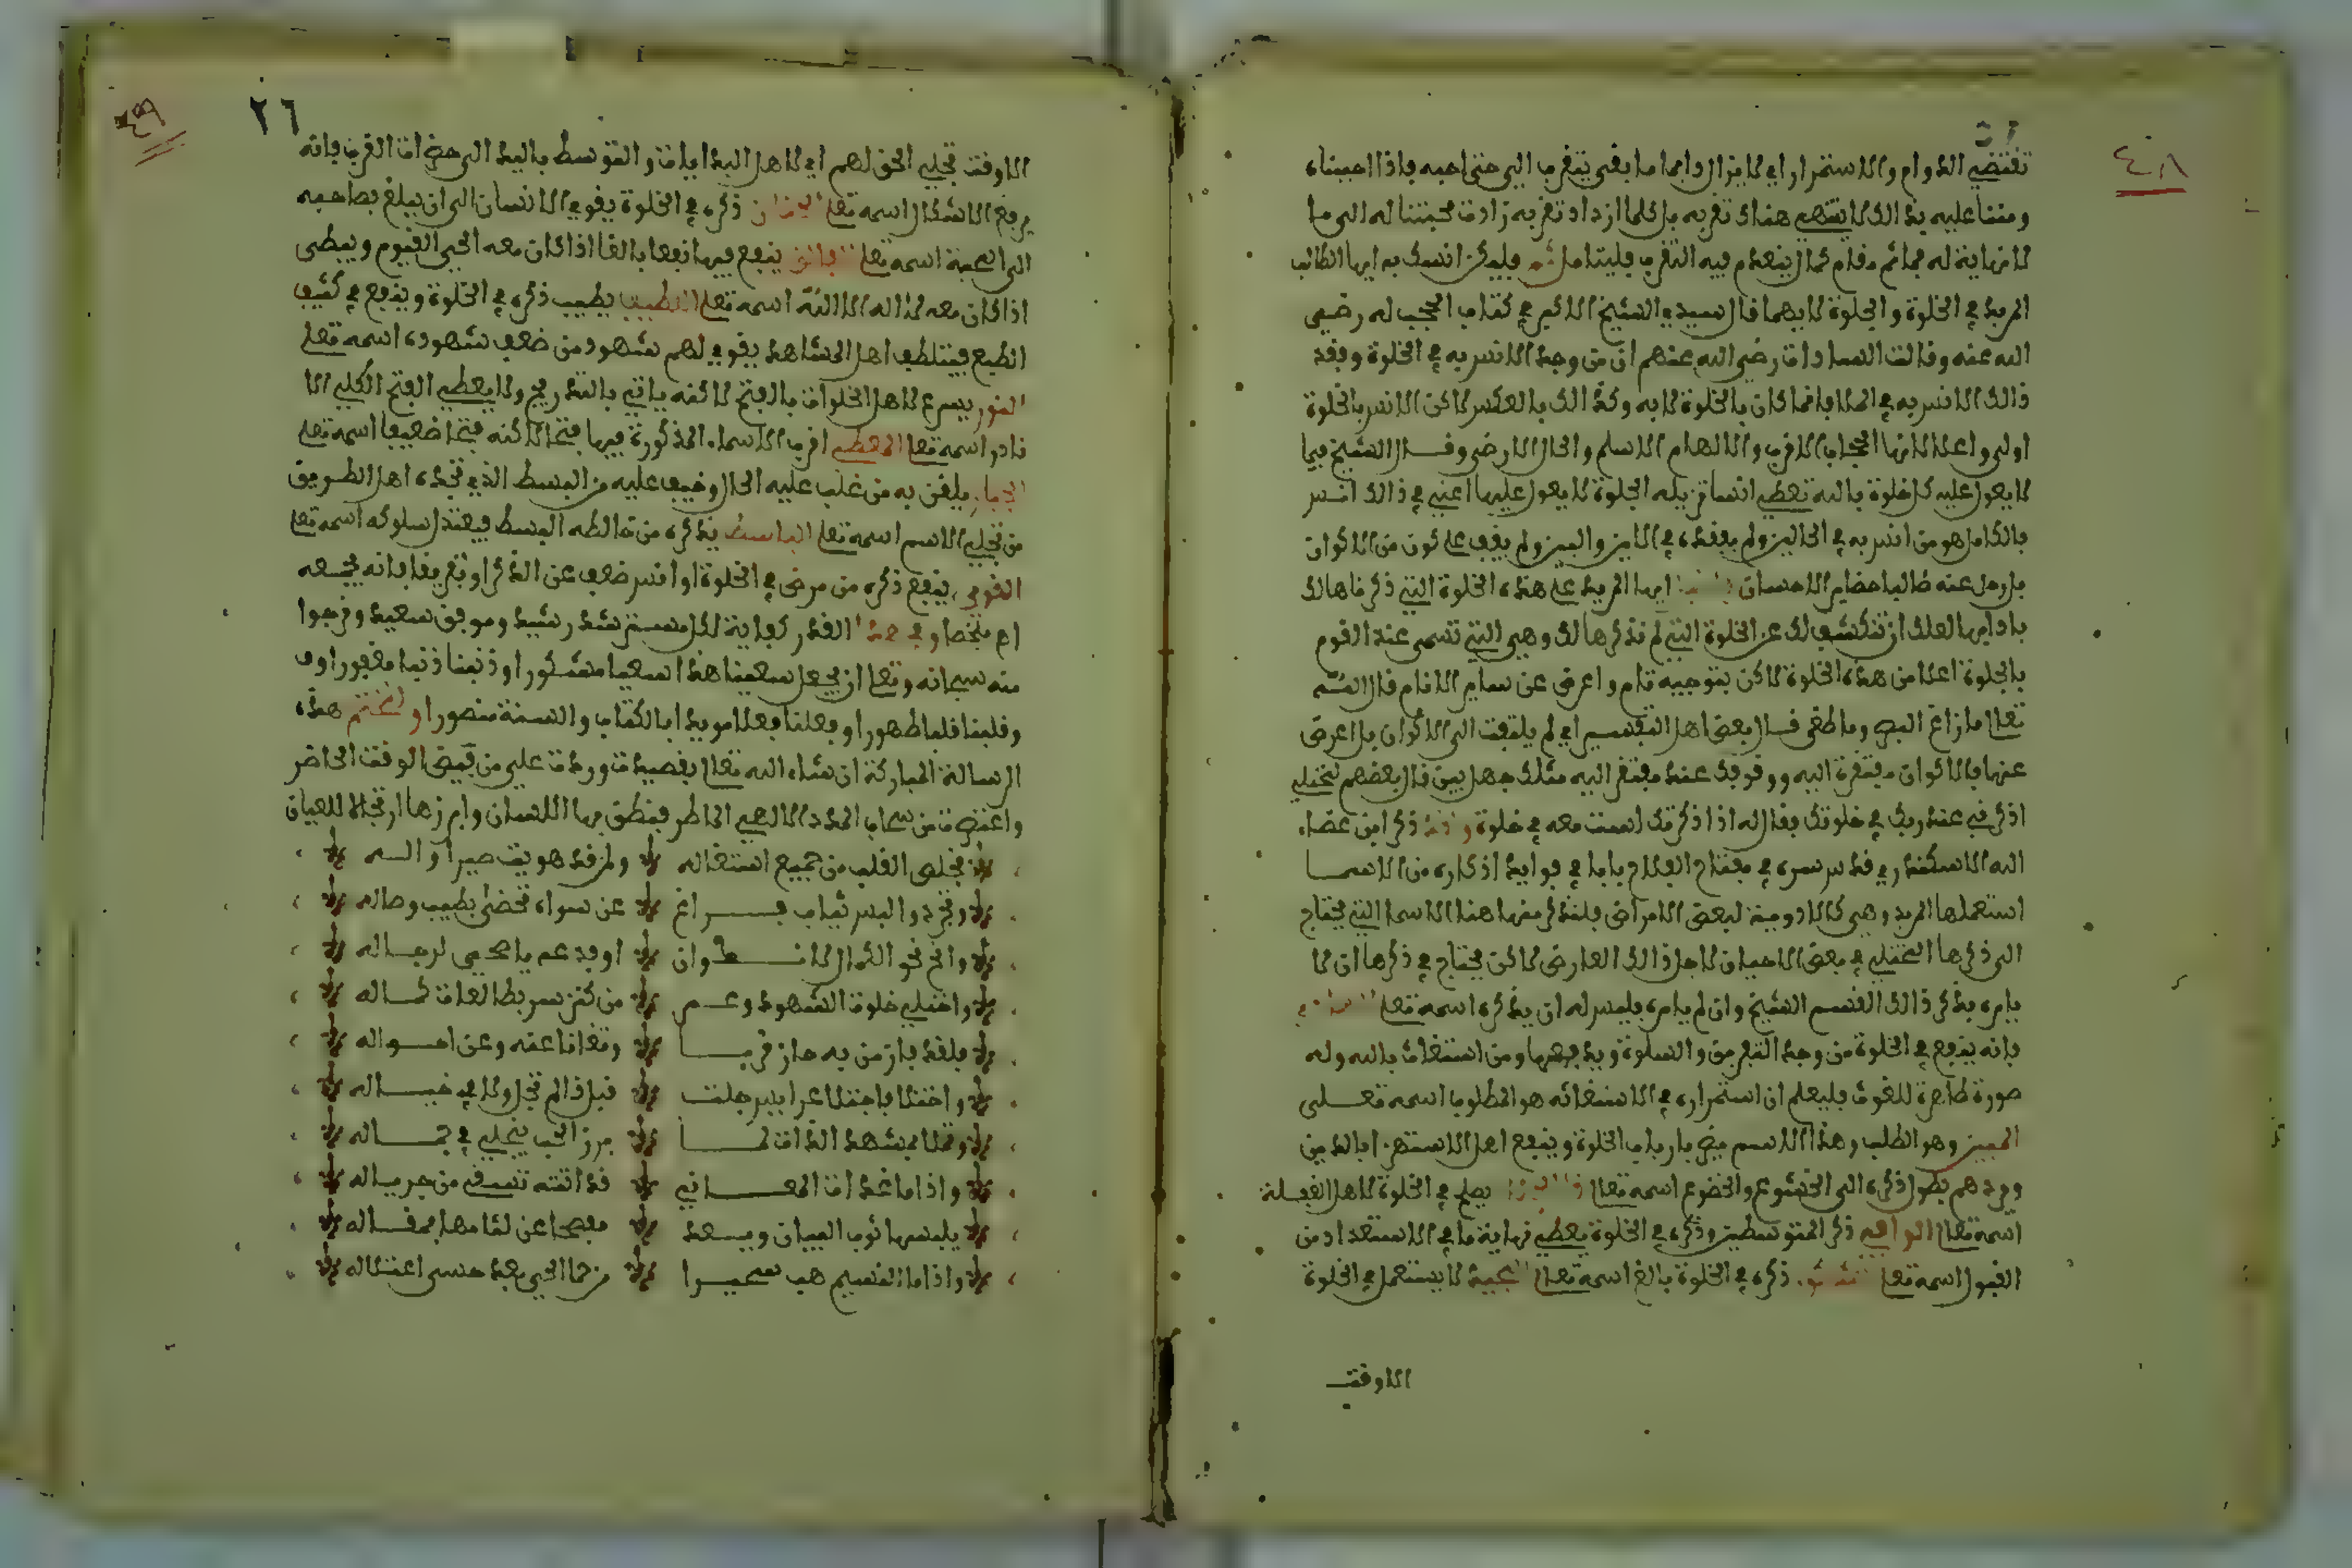 ٤٨
تقتضي الدوام والاستمرار اي لا يزال دايما ما بقي يتقرب الي حتى احبه فاذا احببناه
ومننا عليه بذالك لا ينتهي هناك تقربه بل كلما ازداد تقربه زادت محبتنا له الى ما
لا نهاية له فما ثم مقام كمال ينعدم فيه التقرب فليتامل ثم فليكن انسك به ايها الطالب
المريد في الخلوة والجلوة لا بهما قال سيدي الشيخ الاكبر في كتاب الحجب له رضي
الله عنه وقالت السادات رضي الله عنهم ان من وجد الانس به في الخلوة وفقد
ذالك الانس به في الملا فانما كان بالخلوة لا به وكذالك بالعكس لاكن الانس بالخلوة
اولى واعلا لانها الحجاب الاقرب والالهام الاسلم والحال الارضى وقال الشيخ فيما
لا يعول عليه كل خلوة بالله تعطي انسا تزيله الجلوة لا يعول عليها اعني في ذالك انس
فالكامل هو من انس به في الحالين ولم يفقده في الاين والبين ولم يقف على كون من الاكوان
بل رحل عنه طالبا حضاير الاحسان ايها المريد على هذه الخلوة التي ذكرناها لك
بادابها لعلك ان تنكشف لك عن الخلوة التي لم نذكرها لك وهي التي تسمى عند القوم
بالجلوة اعلا من هذه الخلوة لاكن بتوجيه تام واعرض عن ساير الانام قال الله
تعالى ما زاغ البصر وما طغى قال بعض اهل التفسير اي لم يلتفت الى الاكوان بل اعرض
عنها فالاكوان مفتقرة اليه ووقوفك عند مفتقر اليه مثلك جهل بين قال بعضهم لمختلي
اذكرني عند ربك في خلوتك فقال له اذا ذكرتك لست معه في خلوة وقد ذكر ابن عطاء
الله الاسكندري قدس سره في مفتاح الفلاح بابا في فوايد اذكاره من الاسما
استعملها المريد وهي كالادوية لبعض الامراض فلنذكر منها هنا الاسما التي يحتاج
الى ذكرها المختلي في بعض الاحيان لاجل ذالك العارض لاكن يحتاج في ذكرها ان لا
يامره بذكر ذالك القسم الشيخ وان لم يامره فليس له ان يذكره اسمه تعلى
فانه ينفع في الخلوة من وجد التفرقة والسلوة ويدفعهما ومن استغاث بالله وله
صورة ظاهرة للغوث فليعلم ان استمراره في الاستغاثه هو المطلوب اسمه تعلى
المبين وهو الطلب وهذا الاسم مضر بارباب الخلوة وينفع اهل الاستهزا بالدين
ويردهم بطول ذكره الى الخشوع والخضوع اسمه تعالى يصلح في الخلوة لاهل الغفلة
اسمه تعالى الواهب ذكر المتوسطين وذكره في الخلوة يعطي نهاية ما في الاستعداد من
القبول اسمه تعلى ذكره في الخلوة بالغ اسمه تعالى لا يستعمل في الخلوة
الاوقت
٤٩
٢٦
الاوقت تجلي الحق لهم اي لاهل البدايات والتوسط باليد الى حضرات القرب فانه
يرفع الاشكال اسمه تعلى ذكره في الخلوة يقوي الانسان الى ان يبلغ بصاحبه
الى المحبة اسمه تعلى ينفع فيها نفعا بالغا اذا كان معه الحي القيوم ويبطى
اذا كان معه لا اله الا الله اسمه تعلى اللطيف يطيب ذكره في الخلوة وينفع في كثيف
الطبع فيتلطف اهل المشاهد يقوي لهم شهود من ضعف شهوده اسمه تعلى
النور يسرع لاهل الخلوات بالفتح لاكنه ياتي بالتدريج ولا يعطي الفتح الكلي الا
نادرا اسمه تعلى المعطي اقرب الاسماء المذكورة فيها فتحا لاكنه فتحا ضعيفا اسمه تعلى
يلقن به من غلب عليه الحال وخيف عليه من البسط الذي تجده اهل الطريق
من تجلي الاسم اسمه تعلى الباسط يذكره من خالطه البسط فيعتدل سلوكه اسمه تعلى
القوي ينفع ذكره من مرض في الخلوة او انس ضعف عن الذكر او تفريقا فانه يجمعه
اه ملخصا وفي هذا القدر كفاية لكل مسترشد رشيد وموفق سعيد ونرجوا
منه سبحانه وتعلى ان يجعل سعينا هذا سعيا مشكورا وذنبنا ذنبا مغفورا
وقلبنا قلبا طهورا وفعلنا فعلا مويدا بالكتاب والسنة منصورا ولنختم هذه
الرسالة المباركة ان شاء الله تعالى بقصيدة وردت علي من فيض الوقت الحاضر
واعترضت من سحاب المدد الالاهي الماطر فنطق بها اللسان وابرزها ارتجالا للعيان
فخلص القلب من جميع اشتغاله ولمن قد هويت صير اواله
وتجرد والبس ثياب فراغ عن سواه تحظى بطيب وصاله
وانح نحو الكمال لا او فدعه يا مدعي لرجاله
واختلي خلوة الشهود وعم من كنز سر بطا لعات كماله
فلقد فاز من به حاز قربا وتفانا عنه وعن احواله
واختلا فاجتلا عرايس جلت قبل ذا لم تجل ولا في خياله
وتملا بمشهد الذات لما برز الحب ينجلي في جماله
واذا ما غدات المعاني قد اتته تسقى من جرياله
يلبسها ثوب البيان ويسعد مفصحا عن لثامها بمقاله
واذا ما النسيم هب سحيرا من حما الحي بعد حسن اعتلاله